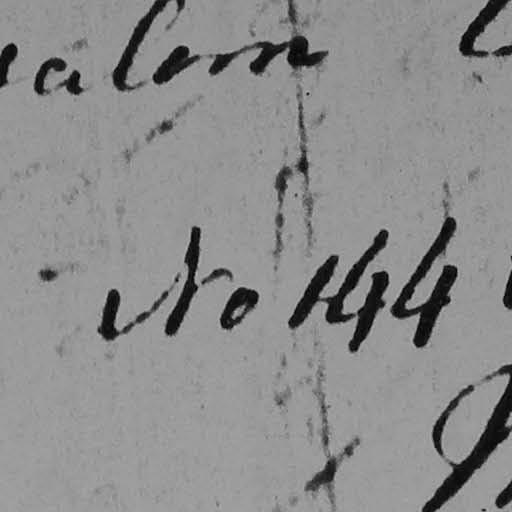 alem
No 144